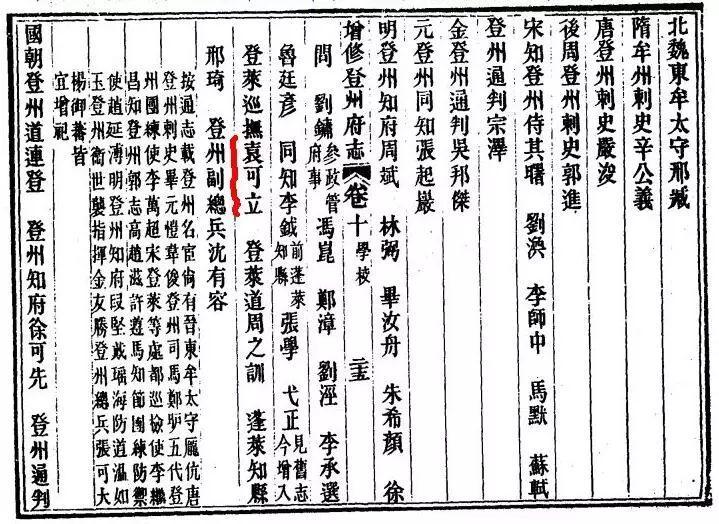 北魏東牟太守邢臧
隋牟州刺史辛公義
唐登州刺史嚴浚
後周登州刺史郭進
宋知登州侍其曙 劉渙 李師中 馬默 蘇軾
登州通判宗澤
金登州通判吳邦傑
元登州同知張起巖
明登州知府周斌 林弼 畢汝舟 朱希顏 徐
增修登州府志 卷十 學校 二五
問 劉鏞參政管府事 馮崑 鄭漳 劉涇 李承選
魯廷彥 同知李鉞前蓬萊知縣 張學 弋正見舊志今增入
登萊巡撫袁可立 登萊道周之訓 蓬萊知縣
邢琦 登州副總兵沈有容
按通志載登州名宦尙有晉東牟太守龐伉唐
登州刺史畢元愷韋俊登州司馬鄭馿五代登
州團練使李萬超宋登萊等處都巡檢使李繼
昌知登州郭志高趙滋許遵馬知節團練防禦
使趙延溥明登州知府段堅戴瑶海防道溫如
玉登州衛世襲指揮金友勝登州總兵張可大
楊御蕃皆
宜增祀
國朝登州道連登 登州知府徐可先 登州通判